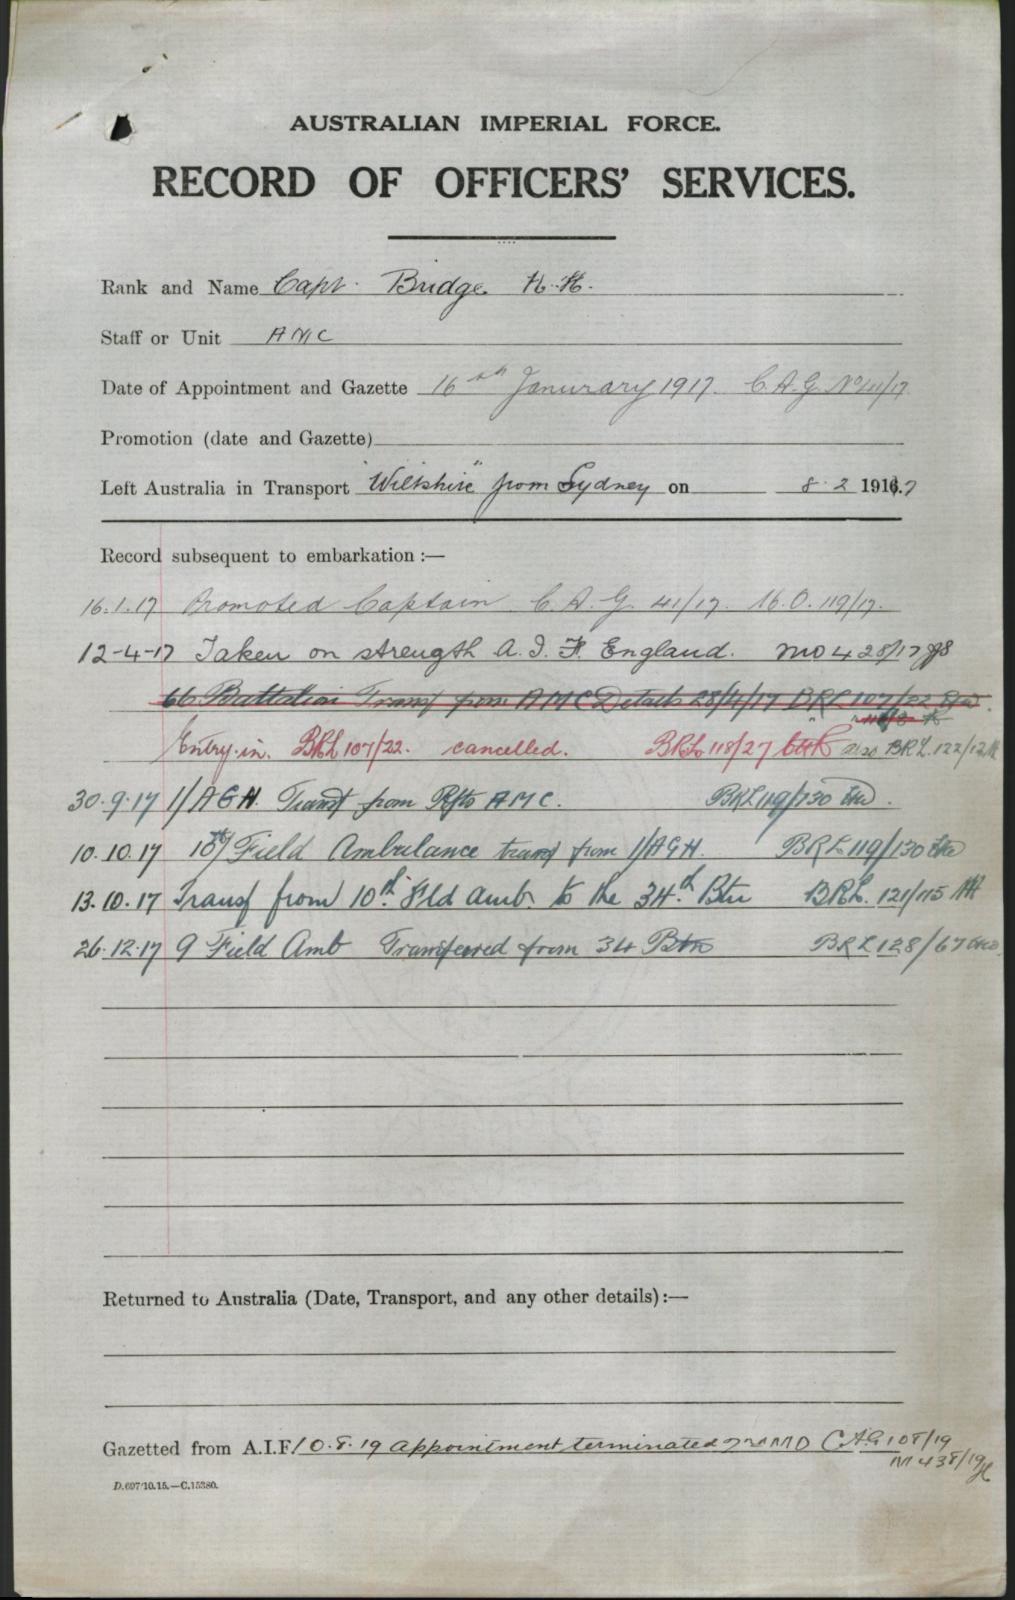 AUSTRALIAN IMPERIAL FORCE.
RECORD OF OFFICERS' SERVICES.
Rank and Name Capt. Bridge
Staff or Unit AMC
Date of Appointment and Gazette 16th Janurary 1917. C.A.G. No 41/17
Promotion (date and Gazette)
Left Australia in Transport "Wiltshire" from Sydney on 8.2 1917
Record subsequent to embarkation :—
16.1.17 Promoted Captain C.A.G. 41/17. M.O. 119/17.
12-4-17 Taken on strength A.I.F. England. MO 428/17
66 Battalion Transf from AMC Details 28/4/17 BRL 107/22
Entry in BRL 107/22. cancelled. BRL 118/27 also BRL. 122/12
30.9.17 1/AGH. Transf from Rfts AMC. BRL 119/130
10.10.17 10th Field Ambulance transf from 1/AGH. BRL 119/130
13.10.17 Transf from 10th Fld amb. to the 34th Btn BRL. 121/115
26.12.17 9 Field Amb Transferred from 34 Btn BRL 128/67
Returned to Australia (Date, Transport, and any other details) :—
Gazetted from A.I.F. 10.8.19 appointment terminated 2nd MD CAG 108/19
M 438/19
D.697/10.15.—C.15380.